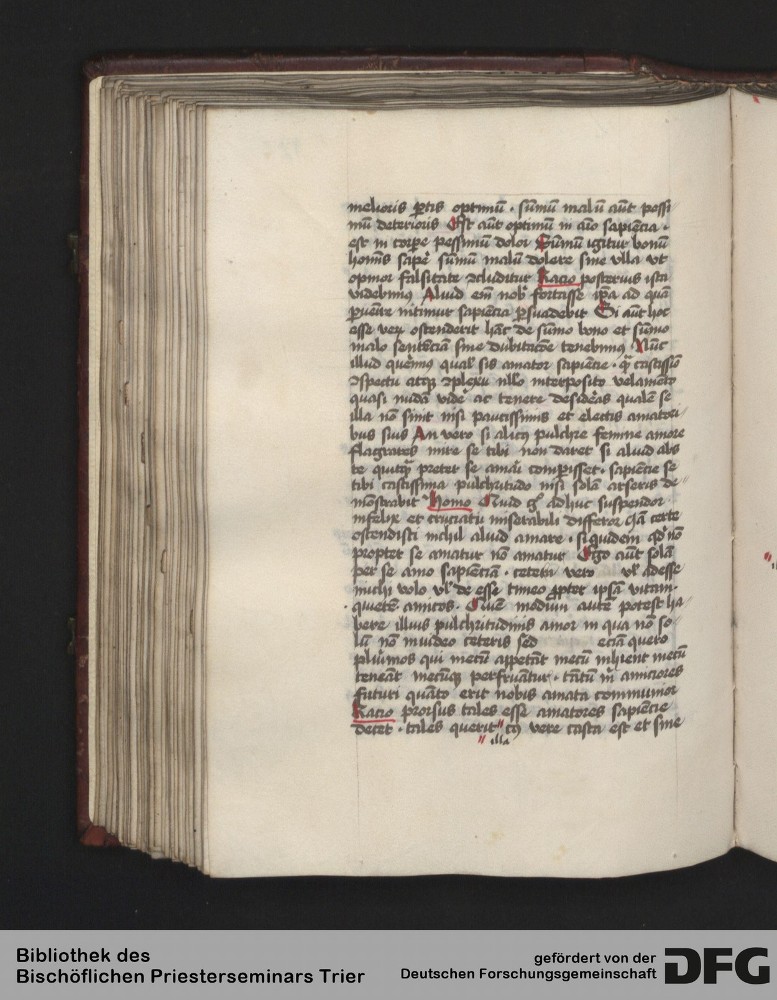 melioris ꝑtis optimū · sūmū malū aūt possi
mū deterioris Est aūt optimū in aīo sapiēcia ·
est in corꝑe pessimū dolor Sūmū igitur bonū
homīs sapeꝰ sūmū malū dolere sine vlla vt
opinor falsitate ꝯcluditur Racio posterius ista
videbimꝰ Aliud em̄ nobꝫ fortasse ip̄a ad quā
ꝑuenire nitimur sapiēcia ꝑsuadebit Si aūt hoc
esse veꝝ ostenderit hāc de sūmo bono et sūmo
malo sentēciam sine dubitacōe tenebimꝰ Nūc
illud querimꝰ qualꝭ sis amator sapiēcie · quā castissīo
ꝯspectu atqꝫ ꝯplexu nullo interposito velamēto
quasi nudā videre ac tenere desideras qualē se
illa nō sinit nisi paucissimis et electis amatori
bus suis An vero si alicuiꝰ pulchre femine amore
flagrares iure se tibi non daret si aliud abs
te quicquā preter se amari comperisset · sapiēcie se
tibi castissima pulchritudo nisi solā arseris de
mōstrabit Homo Quid gͦ adhuc suspendor
infelix et cruciatu miserabili differor Iā certe
ostendisti nichil aliud amare · siquidem qꝺ nō
propter se amatur nō amatur Ego aūt solā
per se amo sapiēciā · cetera vero vꝉ adesse
michi volo vꝉ de esse timeo ꝓpter ipsā vitam ·
quietē amicos · Quē modum autē potest ha
bere illius pulchritudinis amor in qua nō so
lū nō inuideo ceteris sed eciā quero
plurimos qui mecū appetāt mecū inhient mecū
teneāt mecūqꝫ perfruātur · tātū m̄ amiciores
futuri quāto erit nobis amata communior
Racio prorsus tales esse amatores sapiēcie
decet · tales querit " cuiꝰ vere casta est et sine
" illa
Bibliothek des
Bischöflichen Priesterseminars Trier
gefördert von der
Deutschen Forschungsgemeinschaft
DFG